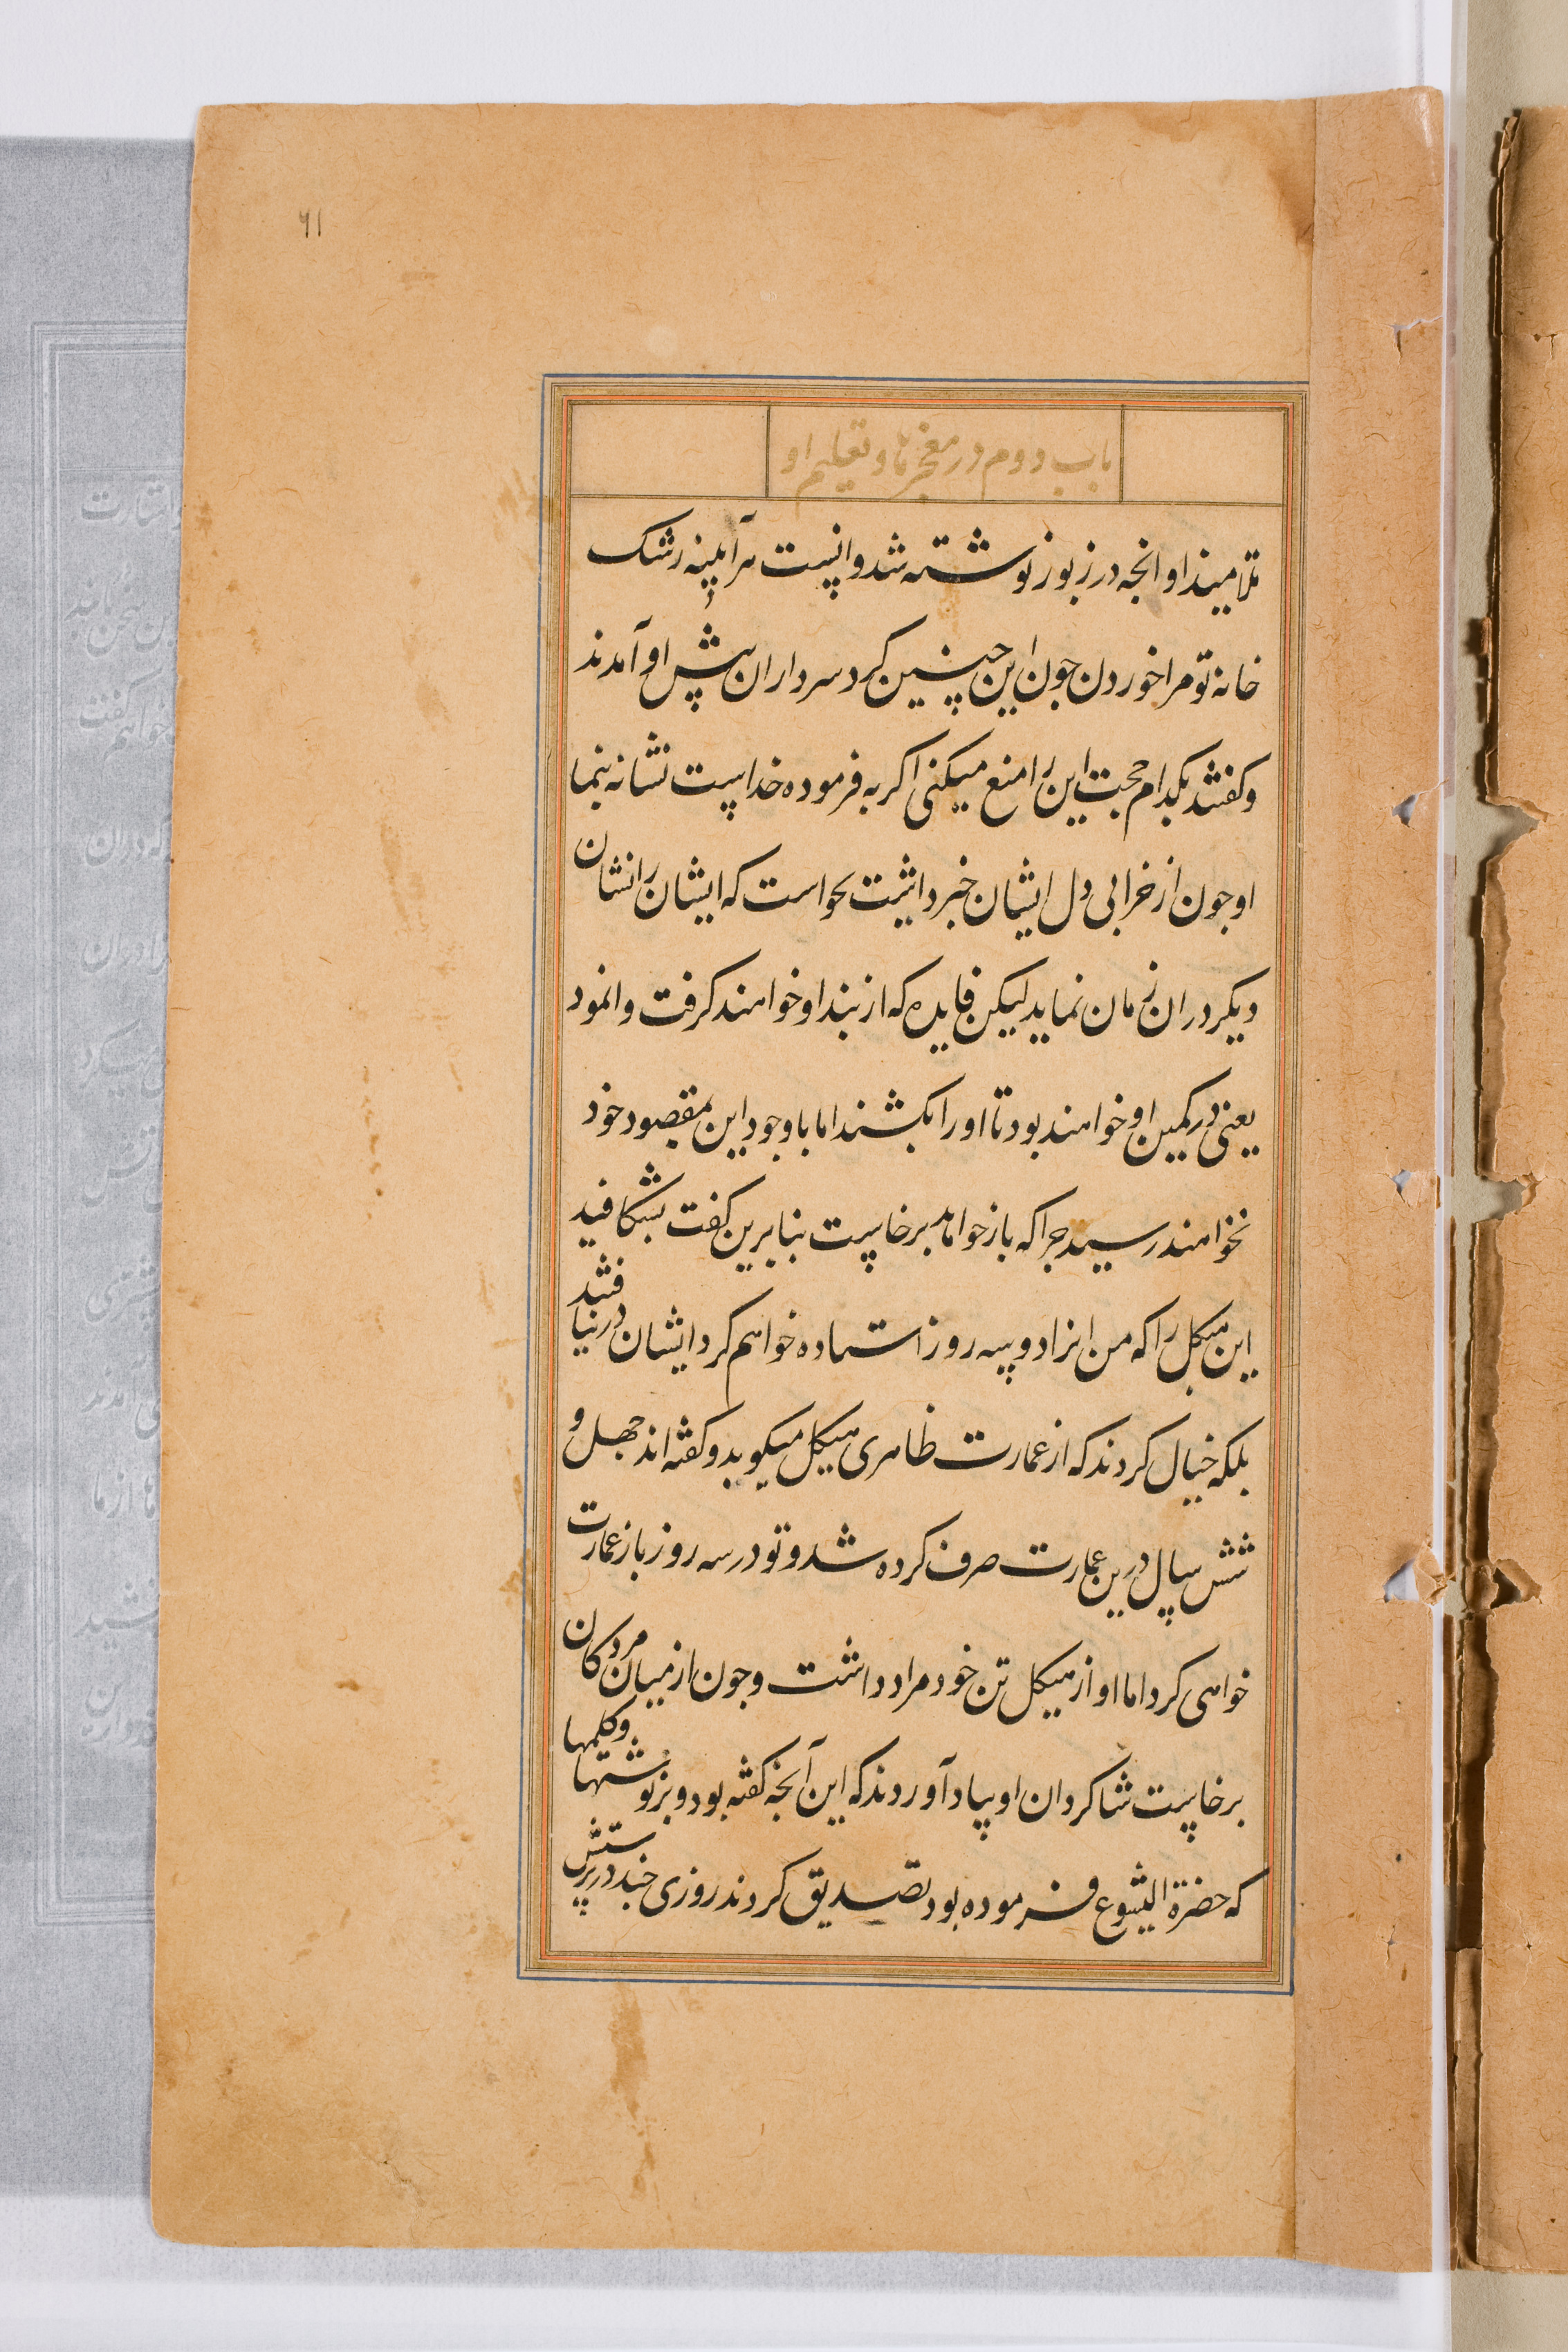 ۶۱
باب دوم در معجزها و تعلیم او
تلامیذ او انجه در زبور نوشته شد دانست هر آینه رشک
خانه تو مرا خوردن جون این چنین کرد سرداران پیش او آمدند
و کفتند بکدام حجت این را منع میکنی اکر به فرموده خداست نشانه بنما
او جون از خرابی دل ایشان خبر داشت نخواست که ایشان را نشان
دیکر دران زمان نماید لیکن فایده که از بند او خواهند کرفت وانمود
یعنی در کمین او خواهند بود تا او را بکشند اما باوجود این بمقصود خود
نخواهند رسید جرا که باز خواهد برخاست بنابرین کفت بشکافید
این هیکل را که من انرا در سه روز استاده خواهم کرد ایشان درنیافتند
بلکه خیال کردند که از عمارت ظاهری هیکل میکوید و کفته اند جهل و
شش سال درین عمارت صرف کرده شد و تو در سه روز باز عمارت
خواهی کرد اما او از هیکل تن خود مراد داشت و جون از میان مردکان
برخاست شاکردان او بیاد آوردند که این آنجه کفته بود و بر نوشتها و کلمها
که حضرة ایشوع فرموده بود تصدیق کردند روزی جند در پرستش